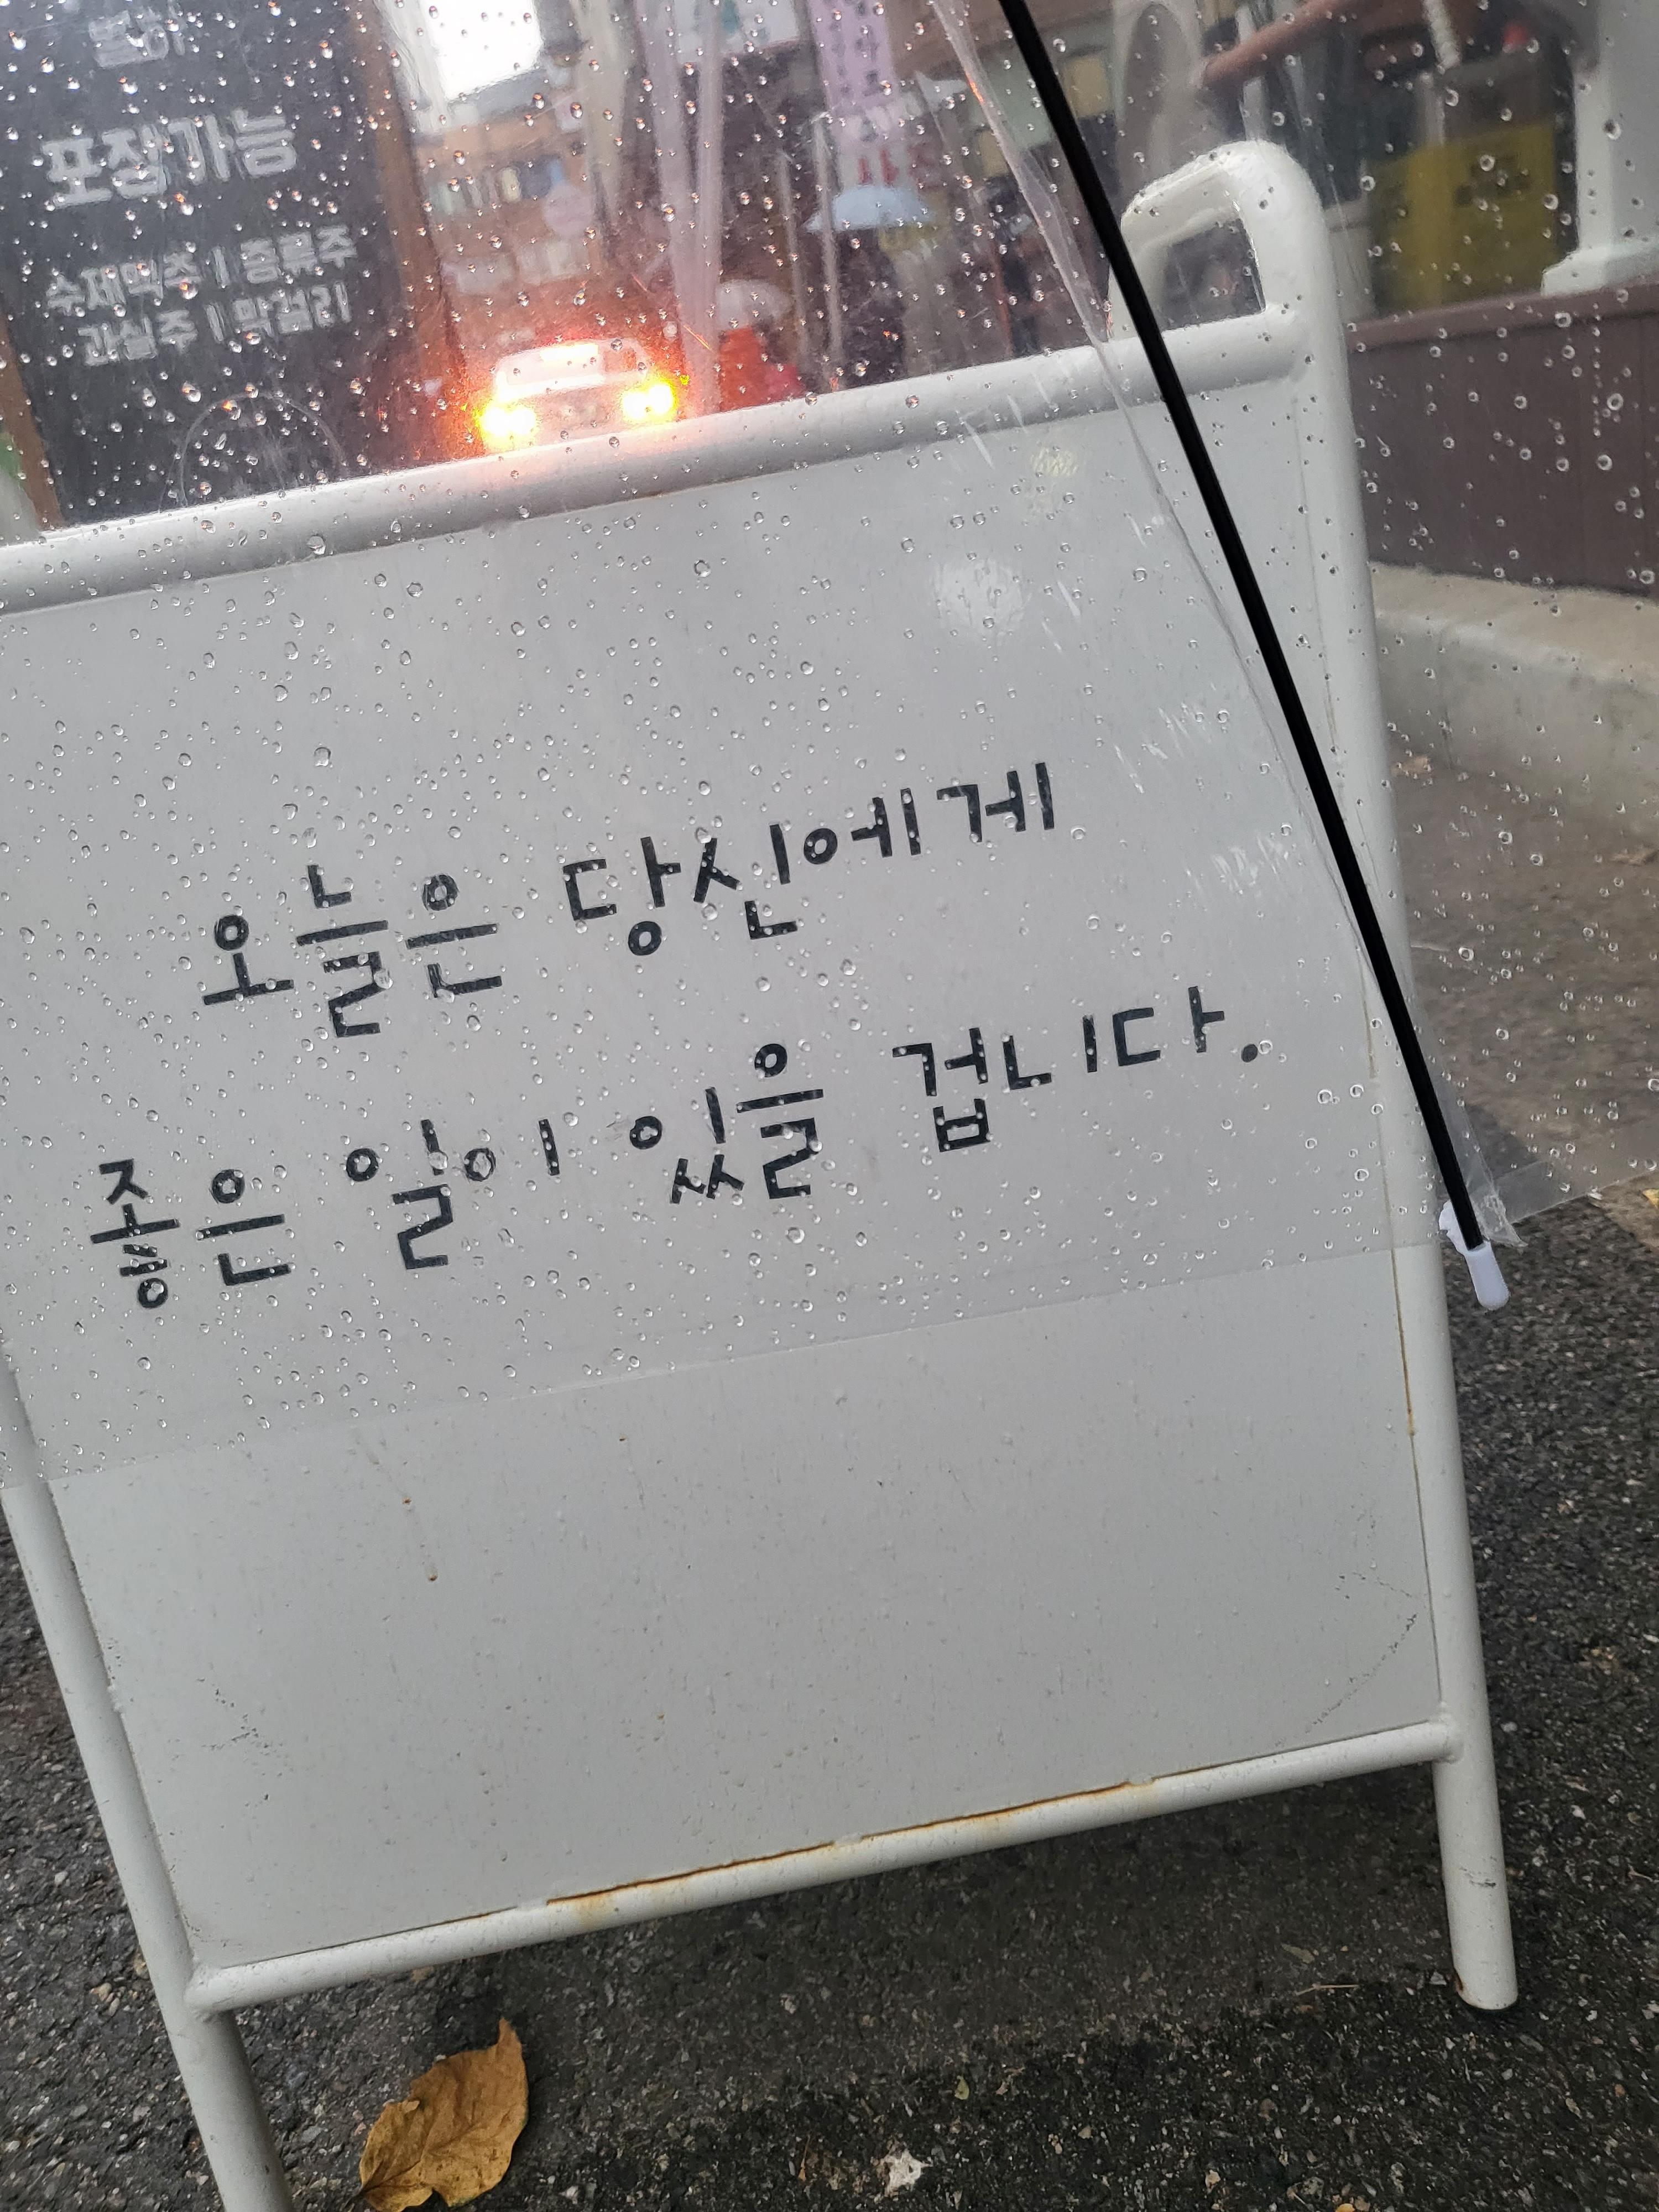 포장가능
수제맥주 | 증류주
과실주 | 막걸리
오늘은 당신에게
좋은 일이 있을 겁니다.